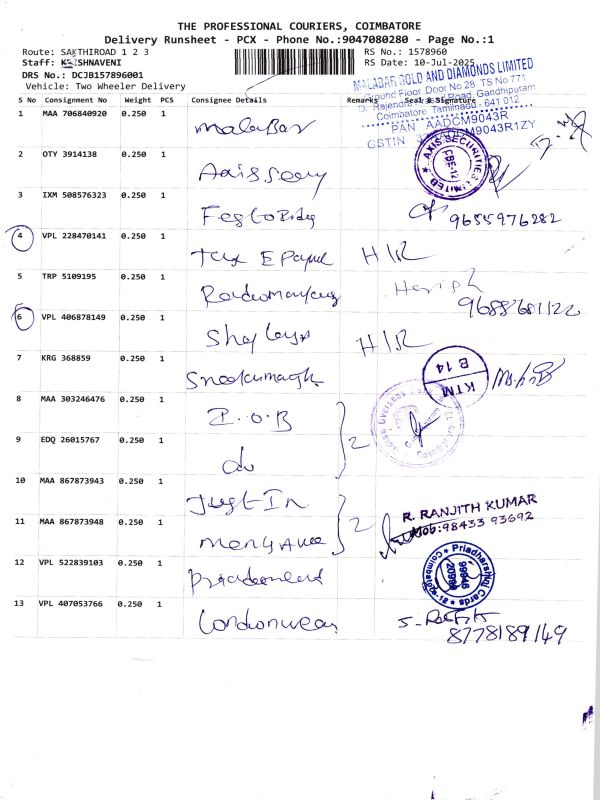 THE PROFESSIONAL COURIERS, COIMBATORE
Delivery Runsheet - PCX - Phone No.:9047080280 - Page No.:1
Route: SAKTHIROAD 1 2 3
RS No.: 1578960
Staff: KRISHNAVENI
RS Date: 10-Jul-2025
DRS No.: DCJB157896001
Vehicle: Two Wheeler Delivery
MALABAR GOLD AND DIAMONDS LIMITED
Ground Floor Door No 28, TS No 771
Rajendra Road, Gandhipuram
Coimbatore Tamilnadu - 641 012
PAN AADCM9043R
GSTIN ADCM9043R1ZY
S No Consignment No Weight PCS Consignee Details Remarks Seal & Signature
1 MAA 706840920 0.250 1 Malabar
2 OTY 3914138 0.250 1
AXIS SECURITIES LIMITED
3 IXM 508576323 0.250 1 9655976282
4 VPL 228470141 0.250 1 Tax E Payul H/R
5 TRP 5109195 0.250 1 Harish
9688681122
6 VPL 406878149 0.250 1 H/R
7 KRG 368859 0.250 1
KTM
B 14
8 MAA 303246476 0.250 1 I.O.B
2
Indian Overseas
Coimbatore
9 EDQ 26015767 0.250 1 do
10 MAA 867873943 0.250 1 Just In
2
R. RANJITH KUMAR
Mob:98433 93692
11 MAA 867873948 0.250 1
12 VPL 522839103 0.250 1
Priadharshni Cards
Coimbatore
13 VPL 407053766 0.250 1 Londonwear
8778189149